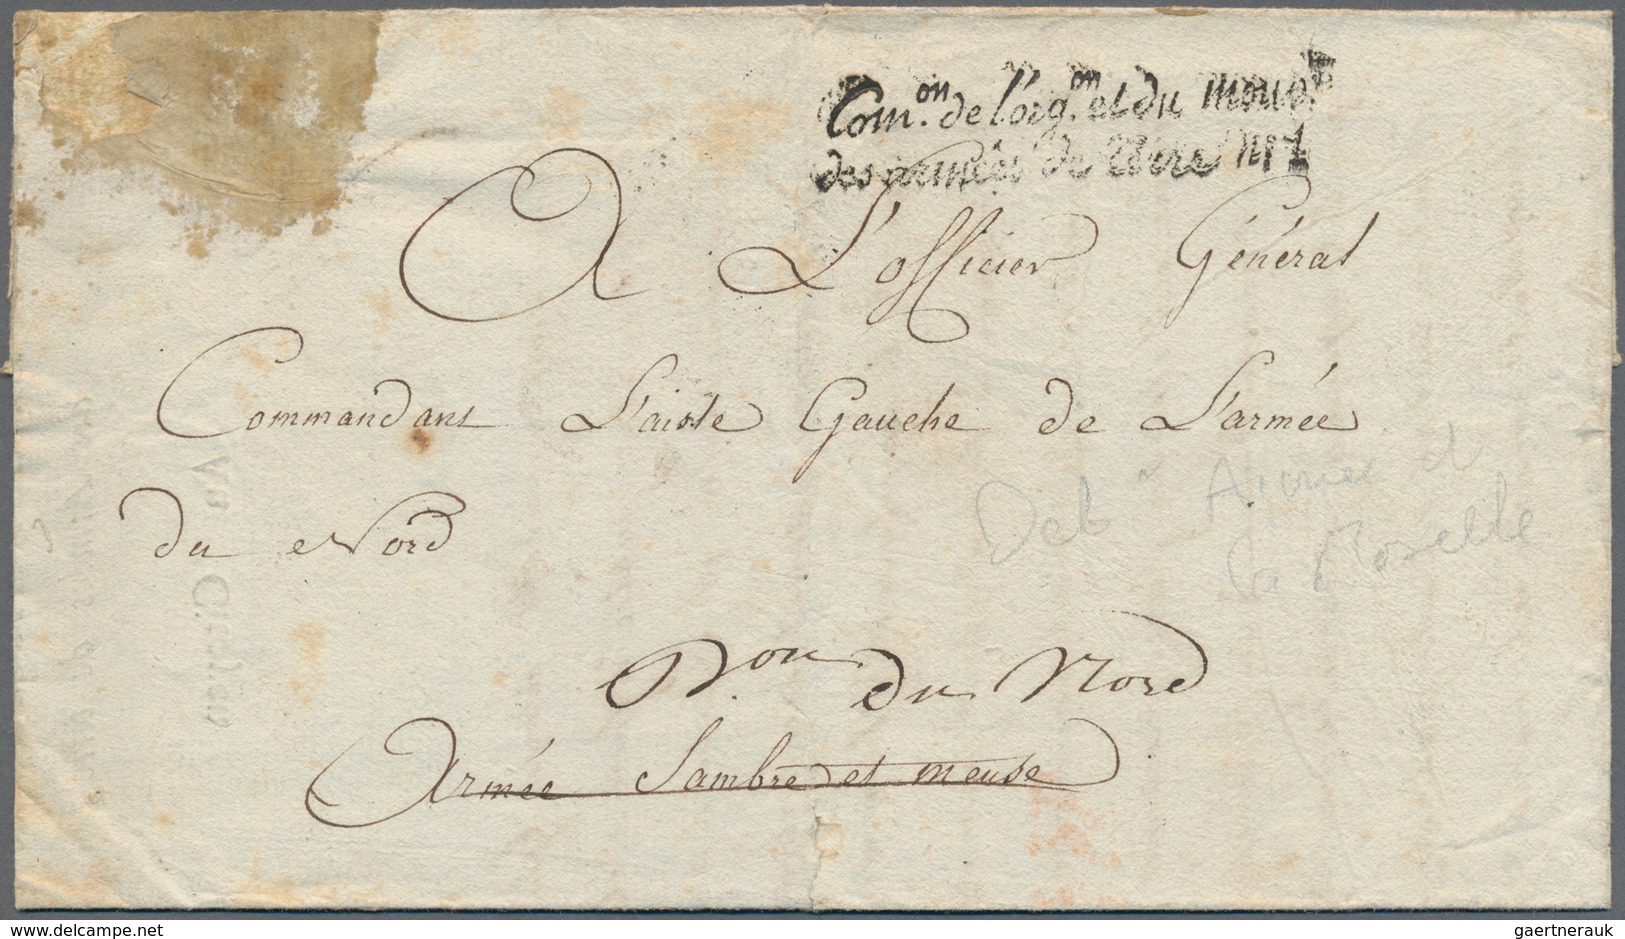 Com.on de l'org.on et du mouv.t
des armées de terre N.º 1
A L'officier Général
Commandant L'aisle Gauche de L'armée
du Nord
Armée et
la Moselle
D.on du Nord
Armée Sambre et meuse
www.delcampe.net
gaertnerauk